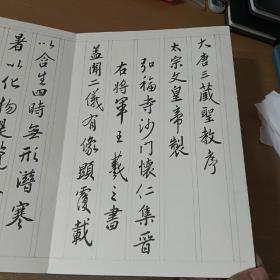 大唐三藏聖教序
太宗文皇帝製
弘福寺沙门懷仁集晋
右将軍王羲之書
盖聞二儀有像顯覆載
以含生四時無形潛寒
暑以化物是